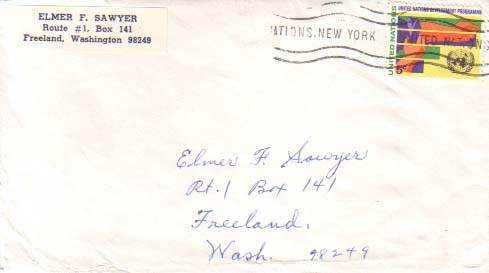 ELMER F. SAWYER
Route #1, Box 141
Freeland, Washington 98249
NATIONS, NEW YORK
UNITED NATIONS DEVELOPMENT PROGRAMME
UNITED NATIONS
UNITED NATIONS
Elmer F. Sawyer
Rt. 1 Box 141
Freeland,
Wash. 98249